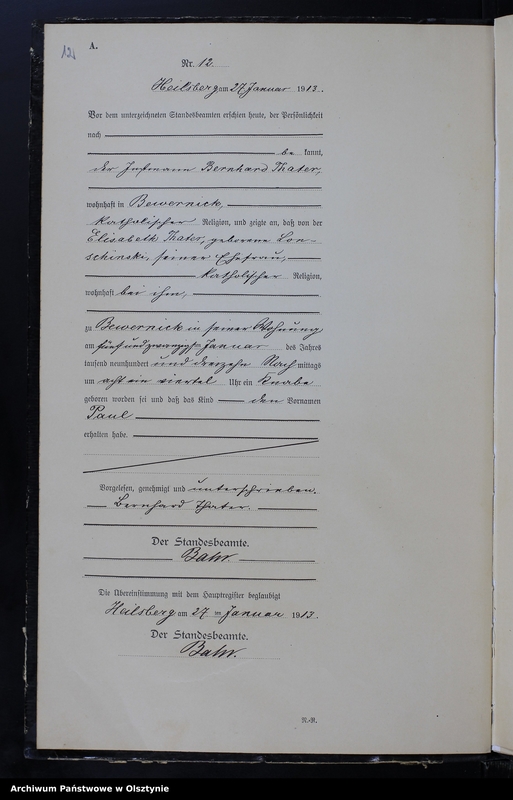 12
A.
Nr. 12.
Heilsberg am 27. Januar 1913.
Vor dem unterzeichneten Standesbeamten erschien heute, der Persönlichkeit
nach
be kannt,
der Instmann Bernhard Thater,
wohnhaft in Bewernick,
katholischer Religion, und zeigte an, daß von der
Elisabeth Thater, geborene Lon-
schinski, seiner Ehefrau,
katholischer Religion,
wohnhaft bei ihm,
zu Bewernick in seiner Wohnung
am fünf und zwanzigsten Januar des Jahres
tausend neunhundert und dreizehn Nach mittags
um acht ein viertel Uhr ein Knabe
geboren worden sei und daß das Kind den Vornamen
Paul
erhalten habe.
Vorgelesen, genehmigt und unterschrieben.
Bernhard Thater.
Der Standesbeamte.
Bahr.
Die Übereinstimmung mit dem Hauptregister beglaubigt
Heilsberg am 27ten Januar 1913.
Der Standesbeamte.
Bahr.
R.-R.
Archiwum Państwowe w Olsztynie